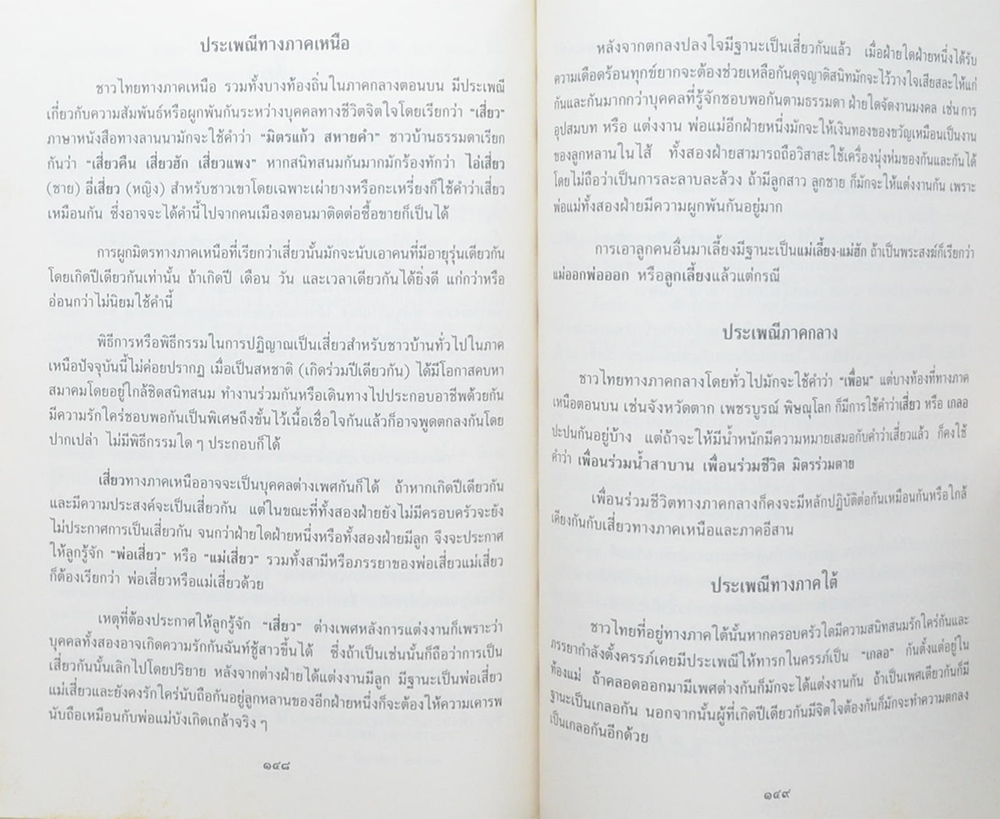 ประเพณีทางภาคเหนือ
ชาวไทยทางภาคเหนือ รวมทั้งบางท้องถิ่นในภาคกลางตอนบน มีประเพณี
เกี่ยวกับความสัมพันธ์หรือผูกพันกันระหว่างบุคคลทางชีวิตจิตใจโดยเรียกว่า "เสี่ยว"
ภาษาหนังสือทางลานนามักจะใช้คำว่า "มิตรแก้ว สหายคำ" ชาวบ้านธรรมดาเรียก
กันว่า "เสี่ยวคืน เสี่ยวฮัก เสี่ยวแพง" หากสนิทสนมกันมากมักร้องทักว่า ไอ่เสี่ยว
(ชาย) อี่เสี่ยว (หญิง) สำหรับชาวเขาโดยเฉพาะเผ่ายางหรือกะเหรี่ยงก็ใช้คำว่าเสี่ยว
เหมือนกัน ซึ่งอาจจะได้คำนี้ไปจากคนเมืองตอนมาติดต่อซื้อขายก็เป็นได้
การผูกมิตรทางภาคเหนือที่เรียกว่าเสี่ยวนั้นมักจะนับเอาคนที่มีอายุรุ่นเดียวกัน
โดยเกิดปีเดียวกันเท่านั้น ถ้าเกิดปี เดือน วัน และเวลาเดียวกันได้ยิ่งดี แก่กว่าหรือ
อ่อนกว่าไม่นิยมใช้คำนี้
พิธีการหรือพิธีกรรมในการปฏิญาณเป็นเสี่ยวสำหรับชาวบ้านทั่วไปในภาค
เหนือปัจจุบันนี้ไม่ค่อยปรากฏ เมื่อเป็นสหชาติ (เกิดร่วมปีเดียวกัน) ได้มีโอกาสคบหา
สมาคมโดยอยู่ใกล้ชิดสนิทสนม ทำงานร่วมกันหรือเดินทางไปประกอบอาชีพด้วยกัน
มีความรักใคร่ชอบพอกันเป็นพิเศษถึงขั้นไว้เนื้อเชื่อใจกันแล้วก็อาจพูดตกลงกันโดย
ปากเปล่า ไม่มีพิธีกรรมใด ๆ ประกอบก็ได้
เสี่ยวทางภาคเหนืออาจจะเป็นบุคคลต่างเพศกันก็ได้ ถ้าหากเกิดปีเดียวกัน
และมีความประสงค์จะเป็นเสี่ยวกัน แต่ในขณะที่ทั้งสองฝ่ายยังไม่มีครอบครัวจะยัง
ไม่ประกาศการเป็นเสี่ยวกัน จนกว่าฝ่ายใดฝ่ายหนึ่งหรือทั้งสองฝ่ายมีลูก จึงจะประกาศ
ให้ลูกรู้จัก "พ่อเสี่ยว" หรือ "แม่เสี่ยว" รวมทั้งสามีหรือภรรยาของพ่อเสี่ยวแม่เสี่ยว
ก็ต้องเรียกว่า พ่อเสี่ยวหรือแม่เสี่ยวด้วย
เหตุที่ต้องประกาศให้ลูกรู้จัก "เสี่ยว" ต่างเพศหลังการแต่งงานก็เพราะว่า
บุคคลทั้งสองอาจเกิดความรักกันฉันท์ชู้สาวขึ้นได้ ซึ่งถ้าเป็นเช่นนั้นก็ถือว่าการเป็น
เสี่ยวกันนั้นเลิกไปโดยปริยาย หลังจากต่างฝ่ายได้แต่งงานมีลูก มีฐานะเป็นพ่อเสี่ยว
แม่เสี่ยวและยังคงรักใคร่นับถือกันอยู่ลูกหลานของอีกฝ่ายหนึ่งก็จะต้องให้ความเคารพ
นับถือเหมือนกับพ่อแม่บังเกิดเกล้าจริง ๆ
๑๔๘
หลังจากตกลงปลงใจมีฐานะเป็นเสี่ยวกันแล้ว เมื่อฝ่ายใดฝ่ายหนึ่งได้รับ
ความเดือดร้อนทุกข์ยากจะต้องช่วยเหลือกันดุจญาติสนิทมักจะไว้วางใจเสียสละให้แก่
กันและกันมากกว่าบุคคลที่รู้จักชอบพอกันตามธรรมดา ฝ่ายใดจัดงานมงคล เช่น การ
อุปสมบท หรือ แต่งงาน พ่อแม่อีกฝ่ายหนึ่งมักจะให้เงินทองของขวัญเหมือนเป็นงาน
ของลูกหลานในไส้ ทั้งสองฝ่ายสามารถถือวิสาสะใช้เครื่องนุ่งห่มของกันและกันได้
โดยไม่ถือว่าเป็นการละลาบละล้วง ถ้ามีลูกสาว ลูกชาย ก็มักจะให้แต่งงานกัน เพราะ
พ่อแม่ทั้งสองฝ่ายมีความผูกพันกันอยู่มาก
การเอาลูกคนอื่นมาเลี้ยงมีฐานะเป็นแม่เลี้ยง-แม่ฮัก ถ้าเป็นพระสงฆ์ก็เรียกว่า
แม่ออกพ่อออก หรือลูกเลี้ยงแล้วแต่กรณี
ประเพณีภาคกลาง
ชาวไทยทางภาคกลางโดยทั่วไปมักจะใช้คำว่า "เพื่อน" แต่บางท้องที่ทางภาค
เหนือตอนบน เช่นจังหวัดตาก เพชรบูรณ์ พิษณุโลก ก็มีการใช้คำว่าเสี่ยว หรือ เกลอ
ปะปนกันอยู่บ้าง แต่ถ้าจะให้มีน้ำหนักมีความหมายเสมอกับคำว่าเสี่ยวแล้ว ก็คงใช้
คำว่า เพื่อนร่วมน้ำสาบาน เพื่อนร่วมชีวิต มิตรร่วมตาย
เพื่อนร่วมชีวิตทางภาคกลางก็คงจะมีหลักปฏิบัติต่อกันเหมือนกันหรือใกล้
เคียงกันกับเสี่ยวทางภาคเหนือและภาคอีสาน
ประเพณีทางภาคใต้
ชาวไทยที่อยู่ทางภาคใต้นั้นหากครอบครัวใดมีความสนิทสนมรักใคร่กันและ
ภรรยากำลังตั้งครรภ์เคยมีประเพณีให้ทารกในครรภ์เป็น "เกลอ" กันตั้งแต่อยู่ใน
ท้องแม่ ถ้าคลอดออกมามีเพศต่างกันก็มักจะได้แต่งงานกัน ถ้าเป็นเพศเดียวกันก็มี
ฐานะเป็นเกลอกัน นอกจากนั้นผู้ที่เกิดปีเดียวกันมีจิตใจต้องกันก็มักจะทำความตกลง
เป็นเกลอกันอีกด้วย
๑๔๙